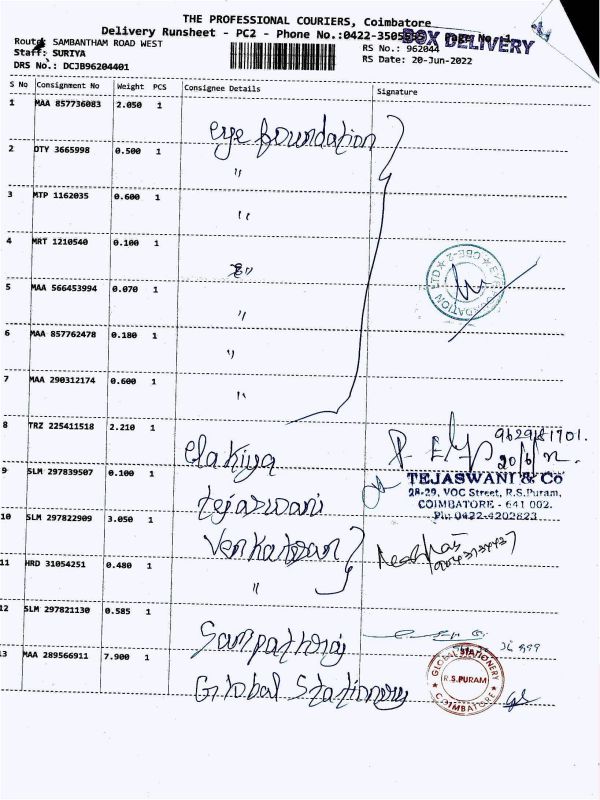 THE PROFESSIONAL COURIERS, Coimbatore
Delivery Runsheet - PC2 - Phone No.:0422-3505
BOX DELIVERY
Route: SAMBANTHAM ROAD WEST
RS No.: 962044
Staff: SURIYA
RS Date: 20-Jun-2022
DRS No.: DCJB96204401
S No Consignment No Weight PCS Consignee Details Signature
1 MAA 857736083 2.050 1
eye foundation
2 DTY 3665998 0.500 1
"
3 MTP 1162035 0.600 1
"
4 MRT 1210540 0.100 1
"
5 MAA 566453994 0.070 1
"
6 MAA 857762478 0.180 1
"
7 MAA 290312174 0.600 1
"
8 TRZ 225411518 2.210 1
elakiya
20/6/22.
9 SLM 297839507 0.100 1
tejaswani
TEJASWANI & Co
28-29, VOC Street, R.S.Puram,
COIMBATORE - 641 002.
Ph: 0422-4202823
10 SLM 297822909 3.050 1
Venkatesan
11 HRD 31054251 0.480 1
"
12 SLM 297821130 0.585 1
Sampathraj
13 MAA 289566911 7.900 1
Global Stationery
GLOBAL STATIONERY
R.S.PURAM
COIMBATORE